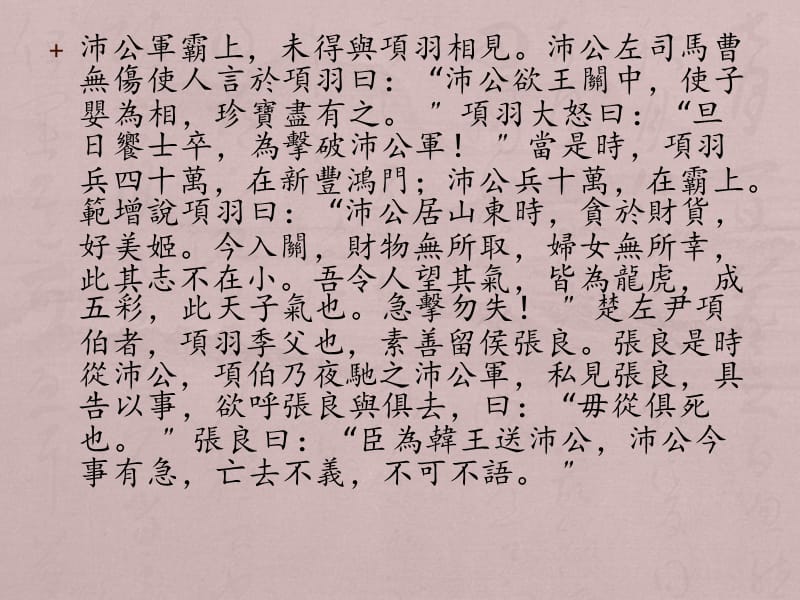 沛公軍霸上，未得與項羽相見。沛公左司馬曹
無傷使人言於項羽曰：“沛公欲王關中，使子
嬰為相，珍寶盡有之。 ＂項羽大怒曰：“旦
日饗士卒，為擊破沛公軍！ ＂當是時，項羽
兵四十萬，在新豐鴻門；沛公兵十萬，在霸上。
範增說項羽曰：“沛公居山東時，貪於財貨，
好美姬。今入關，財物無所取，婦女無所幸，
此其志不在小。吾令人望其氣，皆為龍虎，成
五彩，此天子氣也。急擊勿失！ ＂ 楚左尹項
伯者，項羽季父也，素善留侯張良。張良是時
從沛公，項伯乃夜馳之沛公軍，私見張良，具
告以事，欲呼張良與俱去，曰：“毋從俱死
也。 ＂張良曰：“臣為韓王送沛公，沛公今
事有急，亡去不義，不可不語。 ＂